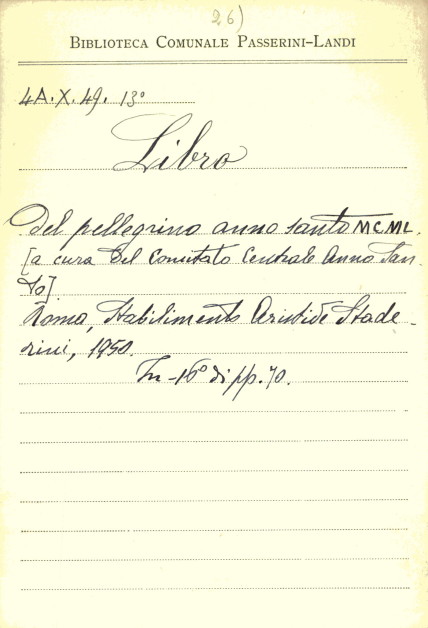 26)
BIBLIOTECA COMUNALE PASSERINI-LANDI
4A.X.49. 13°
Libro
del pellegrino anno santo MCML.
[a cura del Comitato Centrale Anno San-
to]
Roma, Stabilimento Aristide Stade-
rini, 1950.
In-16° di pp. 70.